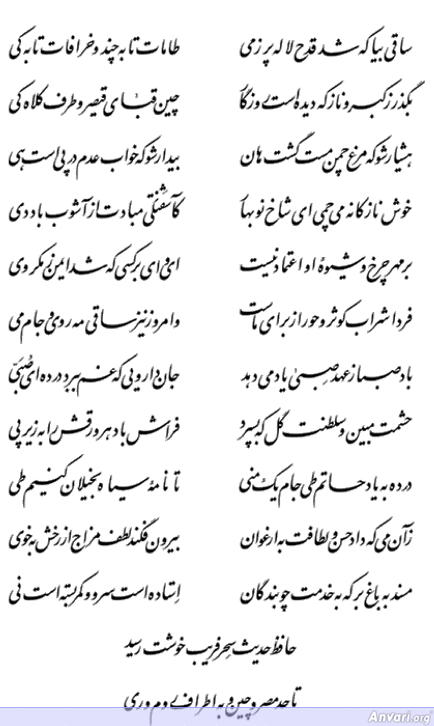 ساقی بیا که شد قدح لاله پر ز می طامات تا به چند و خرافات تا به کی
بگذر ز کبر و ناز که دیده است روزگار چین قبای قیصر و طرف کلاه کی
هشیار شو که مرغ چمن مست گشت هان بیدار شو که خواب عدم در پی است هی
خوش نازکانه می چمی ای شاخ نوبهار کآشفتگی مبادت از آشوب باد دی
بر مهر چرخ و شیوهٔ او اعتماد نیست ای وای بر کسی که شد ایمن ز مکر وی
فردا شراب کوثر و حور از برای ماست و امروز نیز ساقی مه روی و جام می
باد صبا ز عهد صِبیٰ یاد می دهد جان دارویی که غم ببرد درده ای صُبَیّ
حشمت مبین و سلطنت گل که بسپرد فراش باد هر ورقش را به زیر پی
درده به یاد حاتم طی جام یک منی تا نامهٔ سیاه بخیلان کنیم طی
زآن می که داد حسن و لطافت به ارغوان بیرون فکند لطف مزاج از رخش به خوی
مسند به باغ بر که به خدمت چو بندگان اِستاده است سرو و کمر بسته است نی
حافظ حدیث سحرفریب خوشت رسید
تا حد مصر و چین و به اطراف روم و ری
Anvari.org